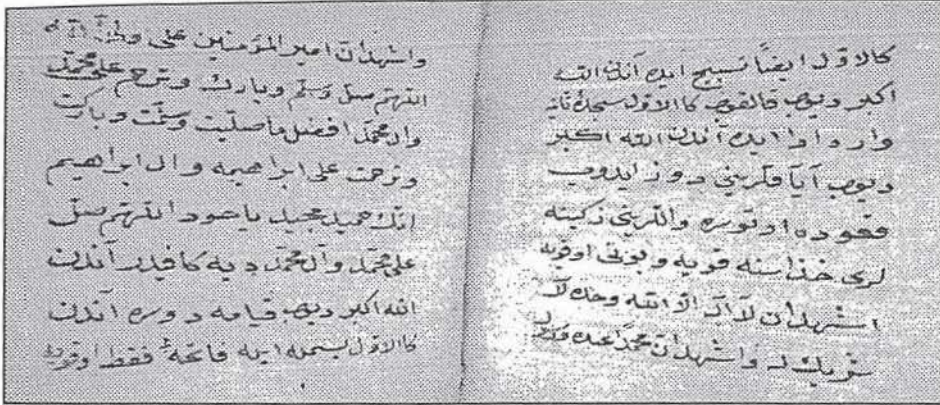 كالاول ايضاً تسبيح ايده آندن الله
اكبر ديوب قالقوب كاالاول سجدۀ ثانيه
وارد اولا ايده آندن الله اكبر
ديوب آياقلريني دوز ايدوب
قعوده اوتوره واللريني
لرى حذاسنه قويه وبونى اوقويه
اشهد ان لا اله الا الله وحده لا
شريك له واشهد ان محمدا عبده ورسوله
واشهد ان امير المؤمنين على ولى الله
اللهم صل وسلم وبارك وترحم على محمد
وال محمد افضل ما صليت وسلمت وباركت
وترحمت على ابراهيم وال ابراهيم
انك حميد مجيد اللهم صل
على محمد وآل محمد ديه آندن
الله اكبر ديوب قيامه دوره آندن
كاالاول بسمله ايله فاتحه فقط اوقويه